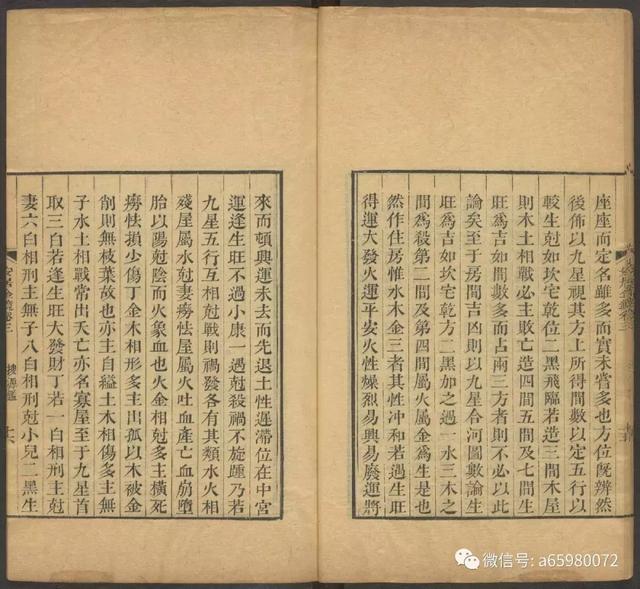 座座而定名雖多而實未嘗多也方位既辨然
後佈以九星視其方上所得間數以定五行以
較生尅如坎宅乾位二黑飛臨若造三間木屋
則木土相戰必主敗亡造四間五間及七間生
旺爲吉如間數多而占兩三方者則不必以此
論矣至于房間吉凶則以九星合河圖數論生
旺爲吉如坎宅乾方二黑加之過一水三木之
間爲殺第二間及第四間屬火屬金爲生是也
然作住房惟水木金三者其性冲和若遇生旺
得運大發火運平安火性燥烈易興易廢運將
十五
來而頓興運未去而先退土性遲滯位在中宮
運逢生旺不過小康一遇尅殺禍不旋踵乃若
九星五行互相尅戰則禍發各有其類水火相
殘屋屬水尅妻癆怯屋屬火吐血產亡血崩墮
胎以陽尅陰而火象血也火金相尅多主橫死
癆怯損少傷丁金木相形多主出孤以木被金
削則無枝葉故也亦主自縊土木相傷多主無
子水土相戰常出夭亡亦名寡屋至于九星首
取三白若逢生旺大發財丁若一白相刑主尅
妻六白相刑主無子八白相刑尅小兒二黑生
卷三
十六
微信号: a65980072